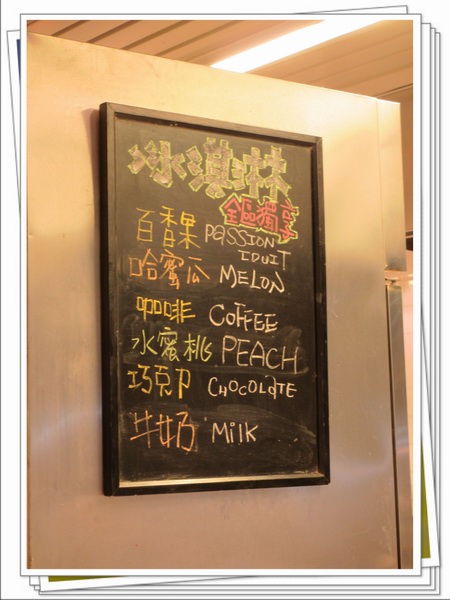 冰淇淋
全區獨享
百香果 PASSION
IDUIT
哈蜜瓜 MELON
咖啡 COFFEE
水蜜桃 PEACH
巧克力 CHOCOLATE
牛奶 MilK